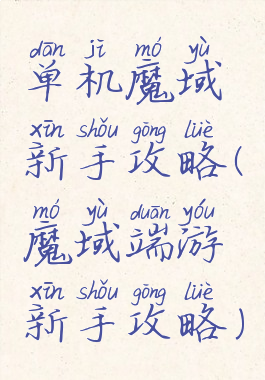 dān jī mó yù
单机魔域
xīn shǒu gōng lüè
新手攻略(
mó yù duān yóu
魔域端游
xīn shǒu gōng lüè
新手攻略)